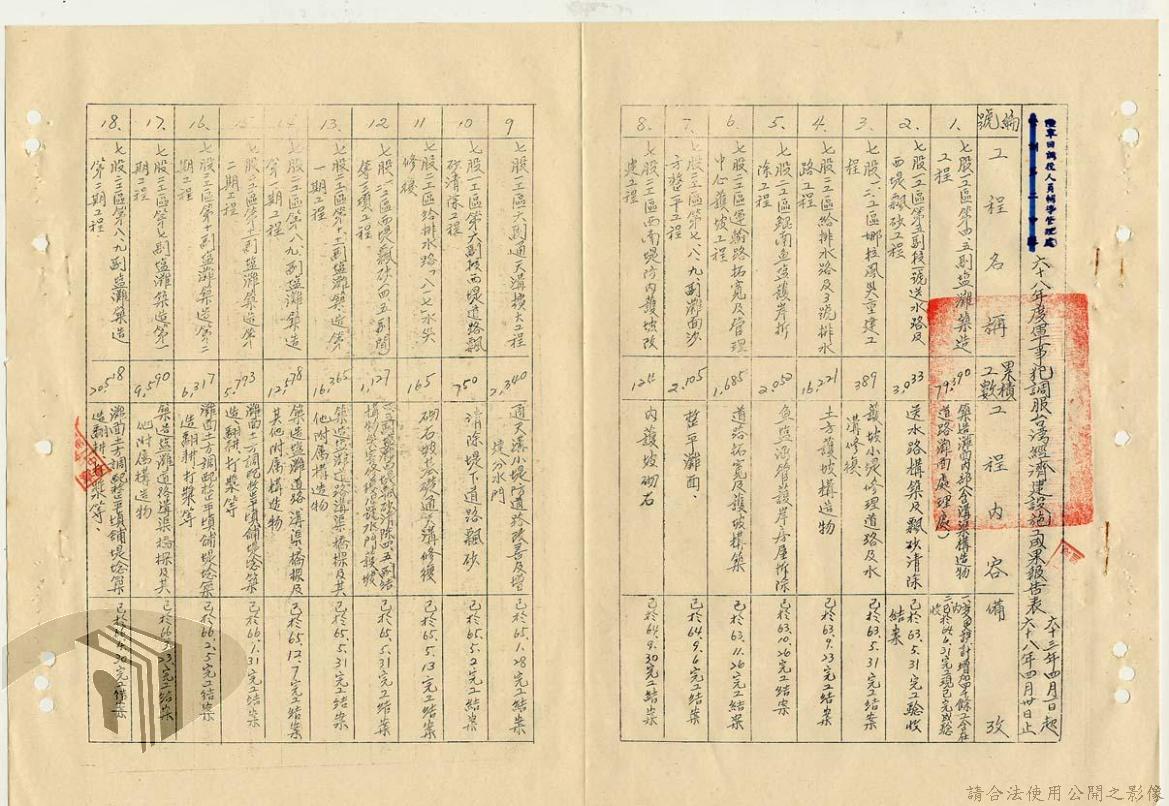 陸軍回調役人員輔導管理處
六十八年度軍事犯調服台灣經濟建設施工成果報告表
六十三年四月一日起
六十八年四月卅日止
編號
工程名稱
累積工數
工程內容
備攷
1.
七股工區第四、五副鹽灘築造
工程
79,390
築造灘面內部含溝渠構造物
道路灘面處理底)
2.
七股一工區第五副後一號送水路及
西堤飄砂工程
3,033
送水路構築及飄砂清除
已於63.5.31完工驗收
結案
3.
七股一、二工區娜拉風災重建工
程
389
舊坡小堤修理道路及水
溝修復
已於63.5.31完工結案
4.
七股二工區給排水路及3號排水
路工程
16,221
土方護坡構造物
已於63.9.23完工結案
5.
七股二工區鯤南魚塭護岸拆
除工程
2,052
魚塭涵管護岸房屋拆除
已於63.10.26完工結案
6.
七股二工區運輸路拓寬及管理
中心護坡工程
1,685
道路拓寬及護坡構築
已於63.11.26完工結案
7.
七股二工區第七、八、九副灘面沙
方整平工程
2,105
整平灘面、
已於64.9.6完工結案
8.
七股二工區西南堤防內護坡改
建工程
內護坡砌石
已於64.9.30完工結案
9
七股二工區大副通天溝擴大工程
2,340
通天溝小堤防道路改善及增
建分水門
已於65.1.28完工結案
10
七股二工區第六副坡西堤道路飄
砂清除工程
750
清除堤下道路飄砂
已於65.5.2完工結案
11
七股二工區給排水路八一七水災
修復
165
砌石坡基礎通天溝修復
已於65.5.13完工結案
12
七股二工區西堤飄砂四五副間
等三項工程
1,127
已於65.5.31完工結案
13.
七股二工區第十一副鹽灘築造第
一期工程
16,365
築造鹽灘道路溝渠橋樑及其
他附屬構造物
已於65.5.31完工結案
七股二工區第八、九副鹽灘築造
第一期工程
12,578
築造鹽灘道路溝渠橋樑及
其他附屬構造物
已於65.12.7完工結案
15.
七股二工區第十一副鹽灘築造第
二期工程
5,793
灘面土方調配整平填舖堤埝築
造翻耕打漿等
已於66.1.31完工結案
16.
七股二工區第十副鹽灘築造第二
期工程
6,317
灘面土方調配整平填舖堤埝築
造翻耕打漿等
已於66.2.5完工結案
17.
七股二工區第七副鹽灘築造第一
期工程
9,590
築造鹽灘道路溝渠橋樑及其
他附屬構造物
已於66.3.23完工結案
18.
七股二工區第八、九副鹽灘築造
第二期工程
灘面土方調配整平填舖堤埝築
造翻耕打漿等
已於66.4.30完工結案
請合法使用公開之影像